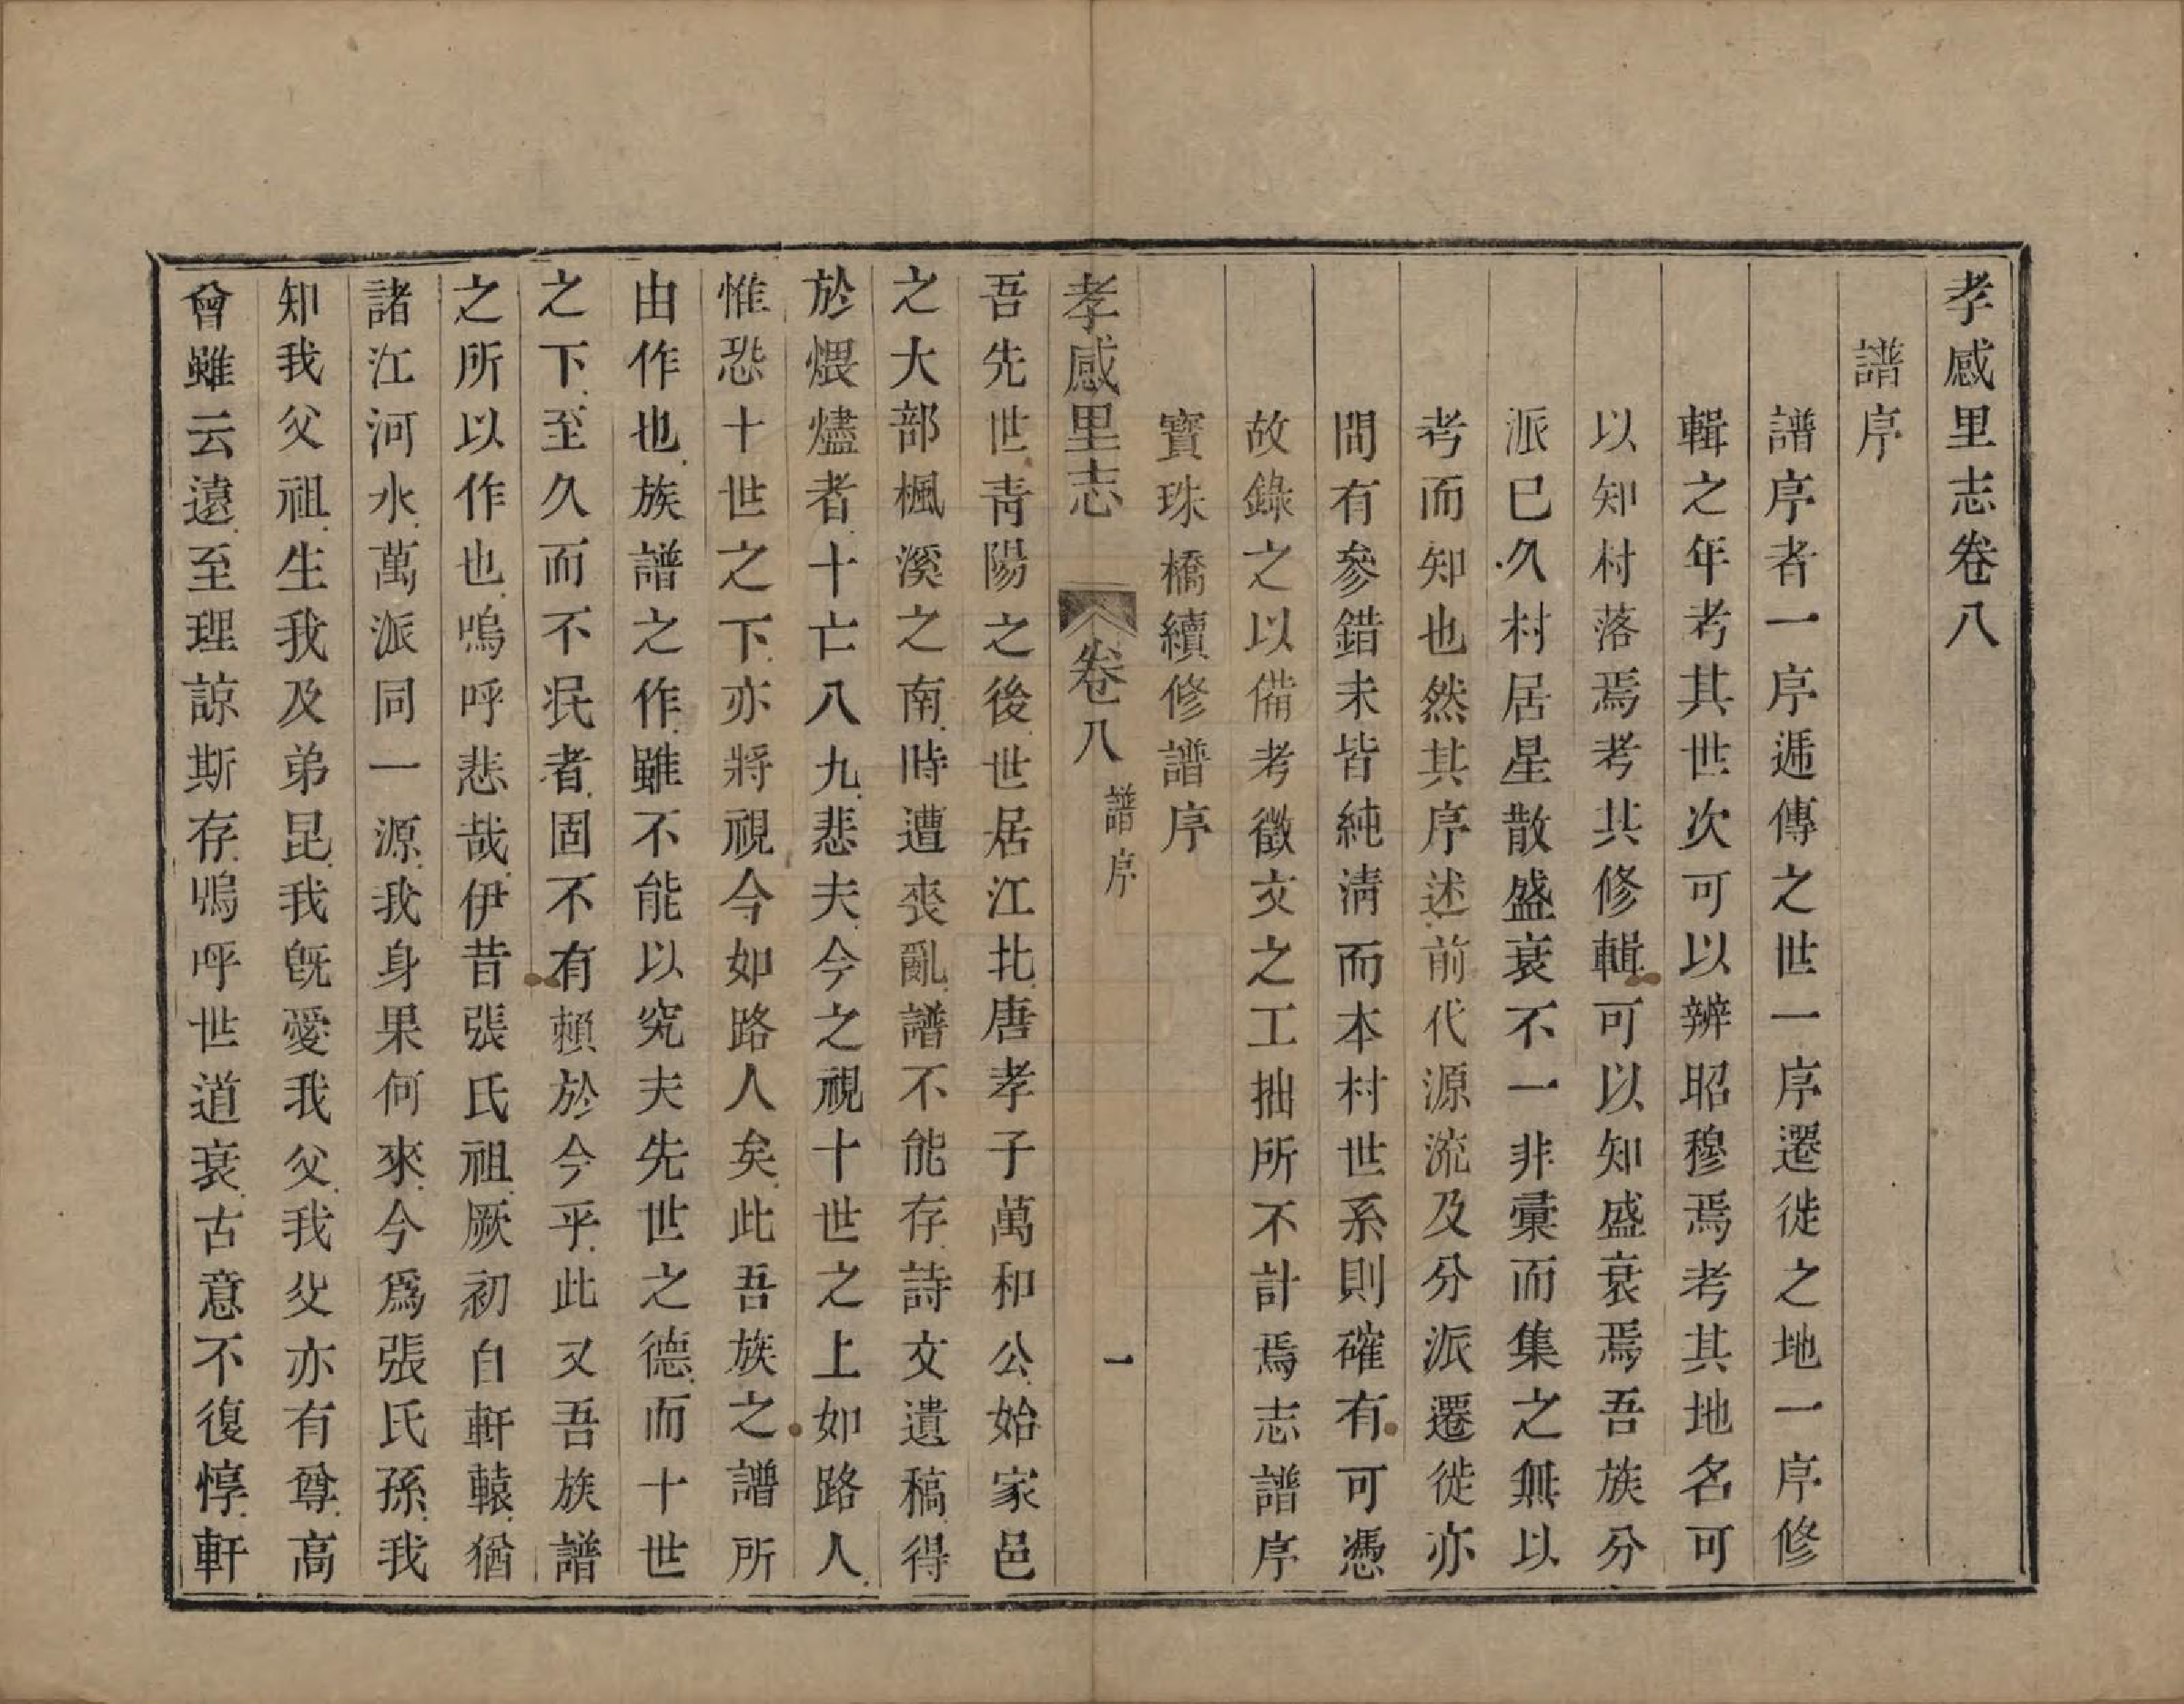 孝感里志卷八
譜序
譜序者一序遞傳之世一序遷徙之地一序修
輯之年考其世次可以辨昭穆焉考其地名可
以知村落焉考其修輯可以知盛衰焉吾族分
派已久村居星散盛衰不一非彙而集之無以
考而知也然其序述前代源流及分派遷徙亦
間有參錯未皆純淸而本村世系則確有可憑
故錄之以備考徵文之工拙所不計焉志譜序
寳珠橋續修譜序
孝感里志
卷八
譜序
一
吾先世靑陽之後世居江北唐孝子萬和公始家邑
之大部楓溪之南時遭喪亂譜不能存詩文遺稿得
於煨燼者十亡八九悲夫今之視十世之上如路人
惟恐十世之下亦將視今如路人矣此吾族之譜所
由作也族譜之作雖不能以究夫先世之德而十世
之下至久而不泯者固不有賴於今乎此又吾族譜
之所以作也嗚呼悲哉伊昔張氏祖厥初自軒轅猶
諸江河水萬派同一源我身果何來今爲張氏孫我
知我父祖生我及弟昆我旣愛我父我父亦有尊高
曾雖云遠至理諒斯存嗚呼世道衰古意不復惇軒